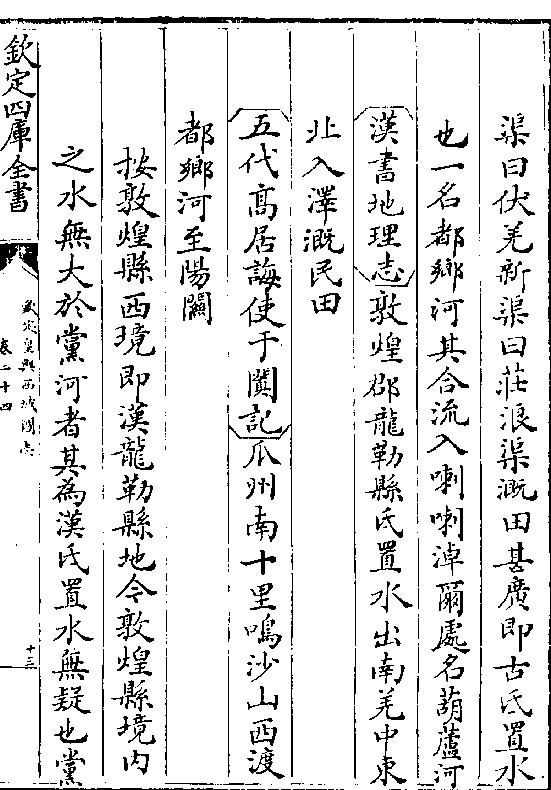 渠曰伏羌新渠曰莊浪渠溉田甚廣即古氐置水
也一名都鄉河其合流入喇喇淖爾處名葫蘆河
漢書地理志敦煌郡龍勒縣氐置水出南羌中東
北入澤溉民田
五代高居誨使于闐記瓜州南十里鳴沙山西渡
都鄉河至陽關
按敦煌縣西境即漢龍勒縣地今敦煌縣境内
之水無大於黨河者其為漢氐置水無疑也黨
欽定四庫全書
欽定皇輿西域圖志
卷二十四
十三